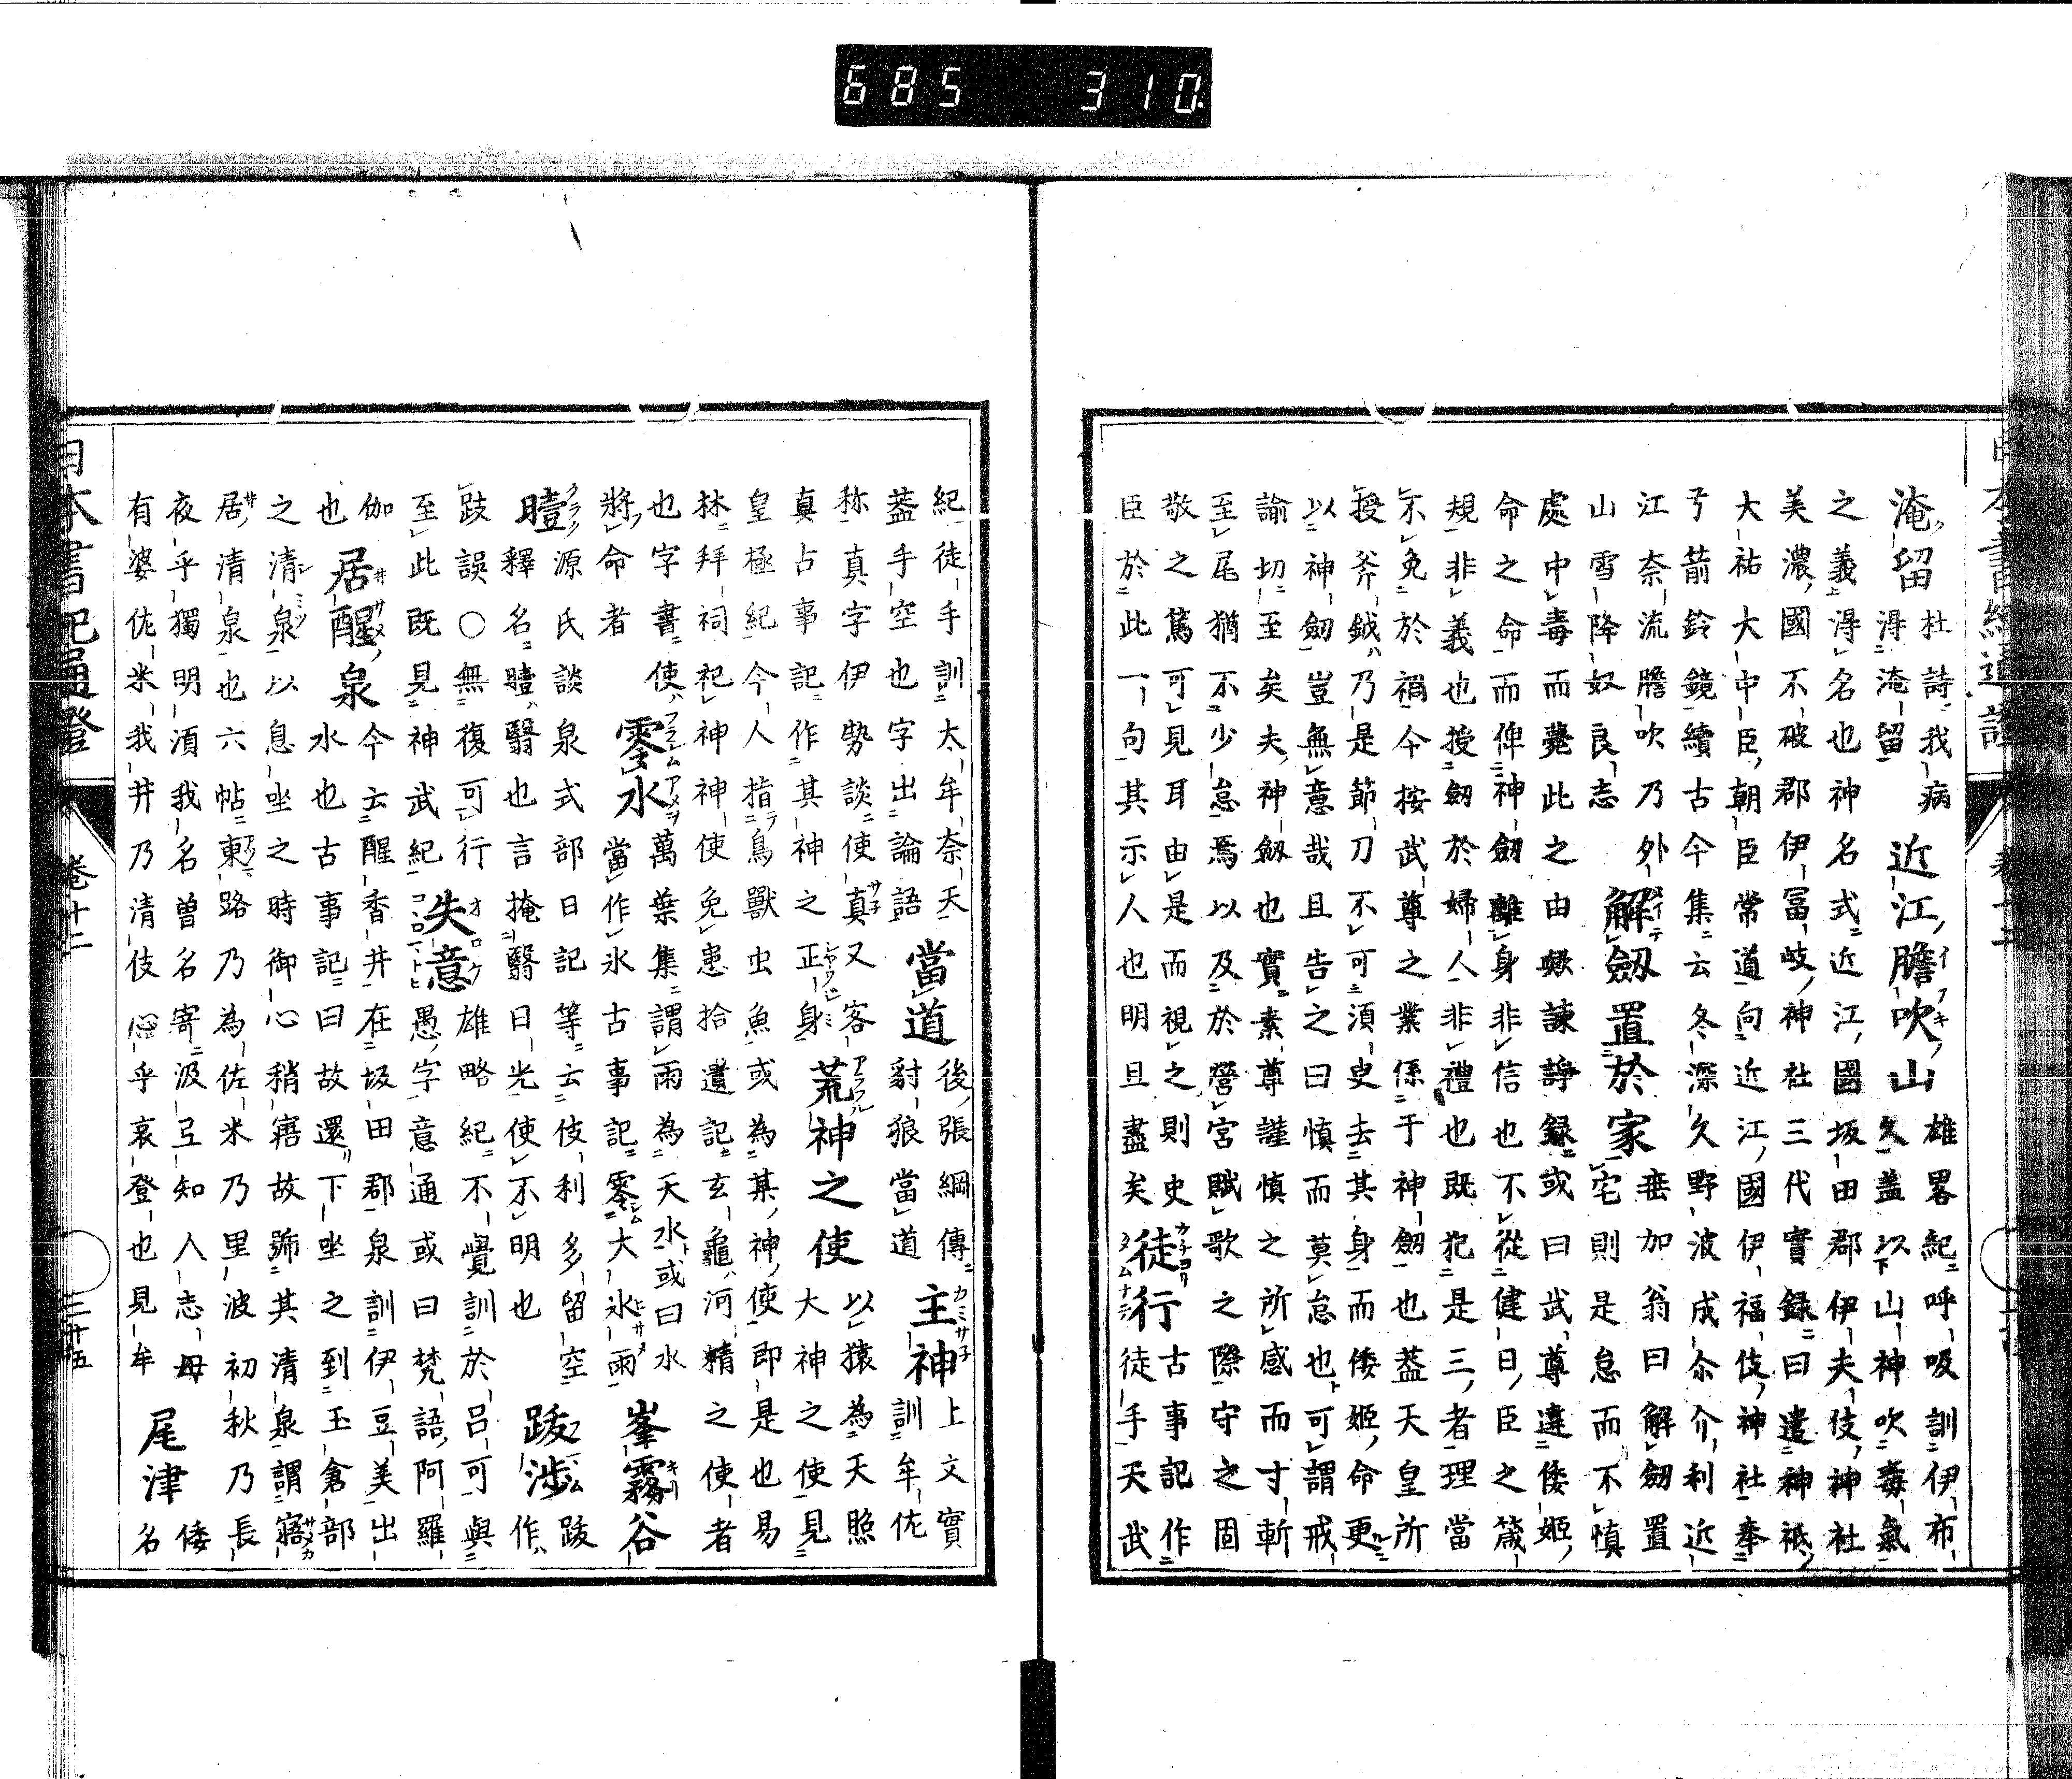 685 310
淹留 杜詩我病得淹留 近江膽吹山 雄畧紀呼吸訓伊布久蓋以下山神吹毒氣
之義上得名也神名式近江國坂田郡伊夫伎神社
美濃國不破郡伊冨岐神社三代實録曰遣神祇
大祐大中臣朝臣常道向近江國伊福伎神社奉
弓箭鈴鏡續古今集云冬深久野波成尓介利近
江奈流膽吹乃外山雪降奴良志 解劔置於家 垂加翁曰解劔置宅則是怠而不慎
處中毒而薨此之由歟諫諍録或曰武尊違倭姫
命之命而俾神劔離身非信也不從健日臣之箴
規非義也授劔於婦人非禮也既犯是三者理當
不免於禍今按武尊之業係于神劔也蓋天皇所
授斧鉞乃是節刀不可須臾去其身而倭姫命更
以神劔豈無意哉且告之曰慎而莫怠也可謂戒
諭切至矣夫神劔也實素尊謹慎之所感而寸斬
至尾猶不少怠焉以及於營宮賦歌之際守之固
敬之篤可見耳由是而視之則史 徒行 古事記作
臣於此一句其示人也明且盡矣 徒手天武
紀徒手訓太牟奈天 當道 後張綱傳豺狼當道 主神 上文實訓牟佐
蓋手空也字出論語
称真字伊勢談使真又客 以猿為天照
真占事記作其神之正身 荒神之使 大神之使見
皇極紀今人指鳥獸虫魚或為某神使即是也易
林拜祠祀神神使免患拾遺記玄龜河精之使者
也字書使將命者 零氷 萬葉集謂雨為天水或曰水當作氷古事記零大氷雨 峯霧谷
曀 源氏談泉式部日記等云伎利多留空 跋渉 跋
釋名曀翳也言掩翳日光使不明也 作
跂誤〇無復可行 失意 雄略紀不覺訓於呂可與
至此既見神武紀 愚字意通或曰梵語阿羅
伽也 居醒泉 今云醒香井在坂田郡泉訓伊豆美出
水也古事記曰故還下坐之到玉倉部
之清泉以息坐之時御心稍寤故號其清泉謂寤
居清泉也六帖東路乃為佐米乃里波初秋乃長
夜乎獨明須我名曽名寄汲弖知人志毋 尾津 倭
有婆佐米我井乃清伎心乎哀登也見牟 名
日本書紀通證 卷十二 二十五